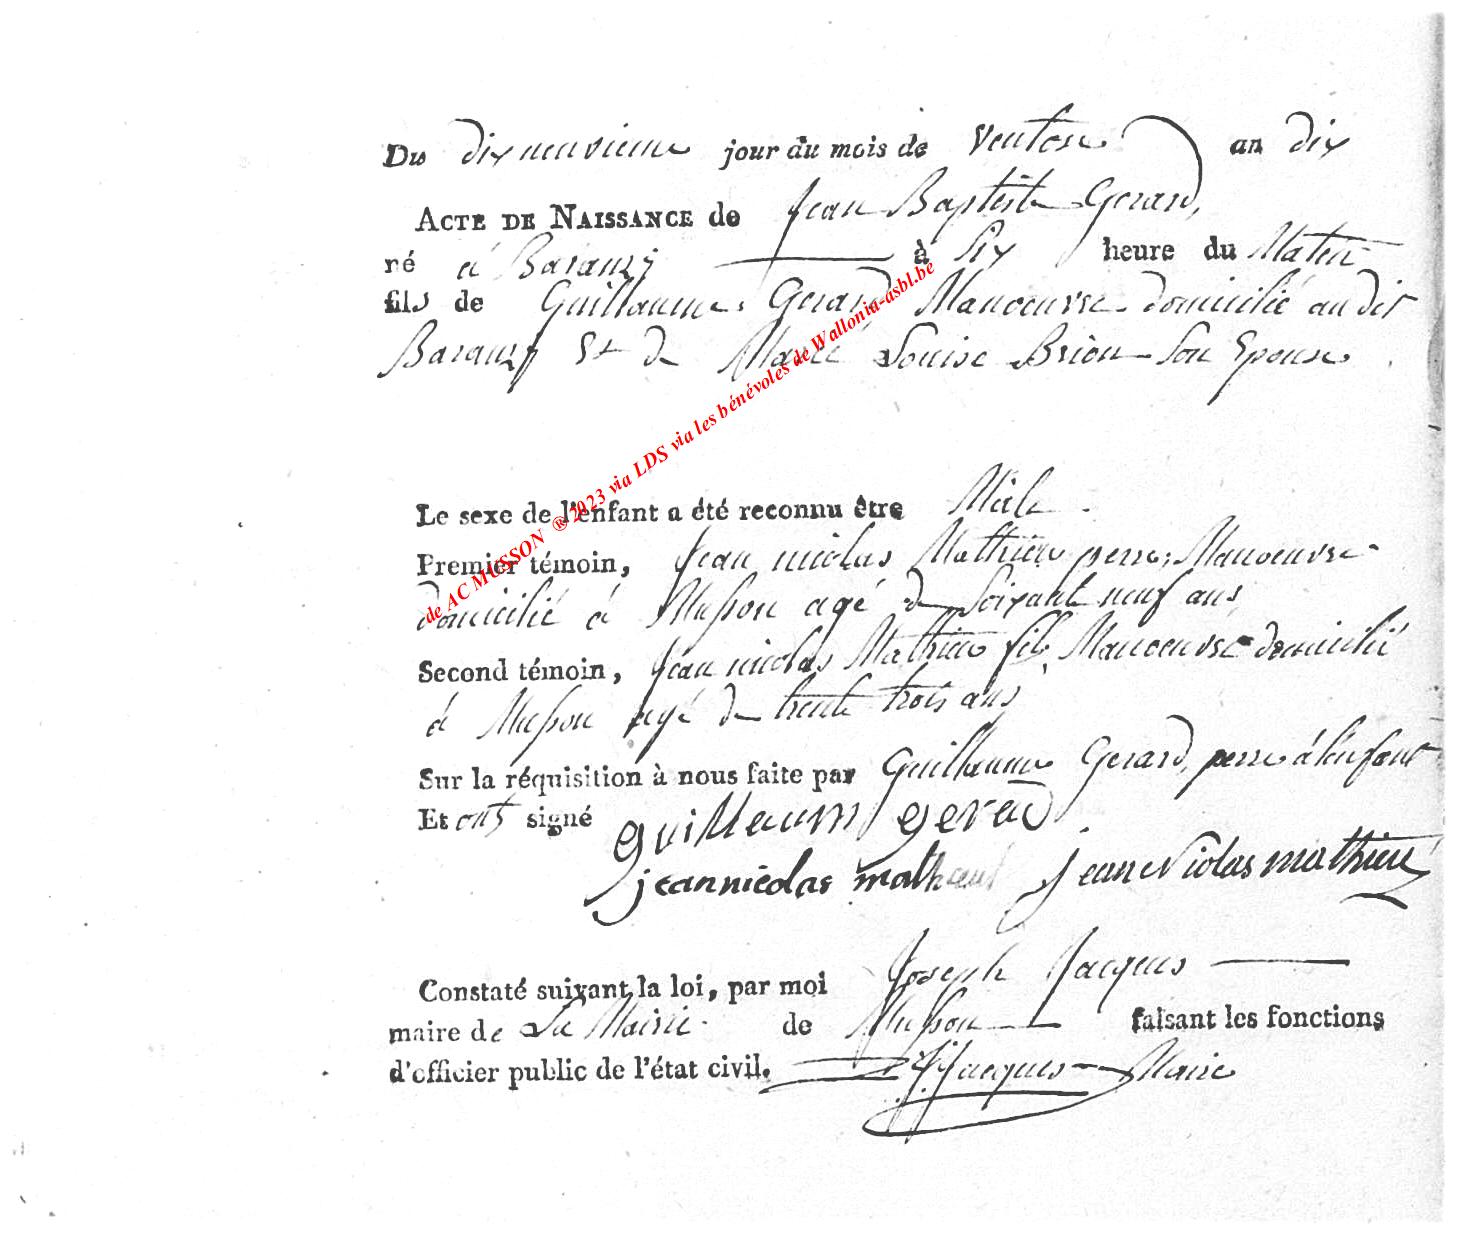 Du dix neuvieme jour du mois de Ventose an dix
ACTE DE NAISSANCE de Jean Baptiste Gerard,
né a Baranzy à Six heure du Matin
fils de Guillaume Gerard Manoeuvre domicilié au dit
Baranzy Et de Marie Louise Brion Son Epouse
Le sexe de l'enfant a été reconnu être Male
Premier témoin, Jean nicolas Mathieu perre, Manoeuvre
domicilié a Musson agé de Soixante neuf ans
Second témoin, Jean nicolas Mathieu fils Manoeuvre domicilié
a Musson agé de trente trois ans
Sur la réquisition à nous faite par Guillaume Gerard, perre a l'enfant
Et onts signé guilleaum gerad
jeannicolas mathieu jean Nicolas mathieu
Constaté suivant la loi, par moi Joseph Jacques
maire de La Mairie de Musson faisant les fonctions
d'officier public de l'état civil. JJacques Maire
de AC MUSSON ® 2023 via LDS via les bénévoles de Wallonia-asbl.be